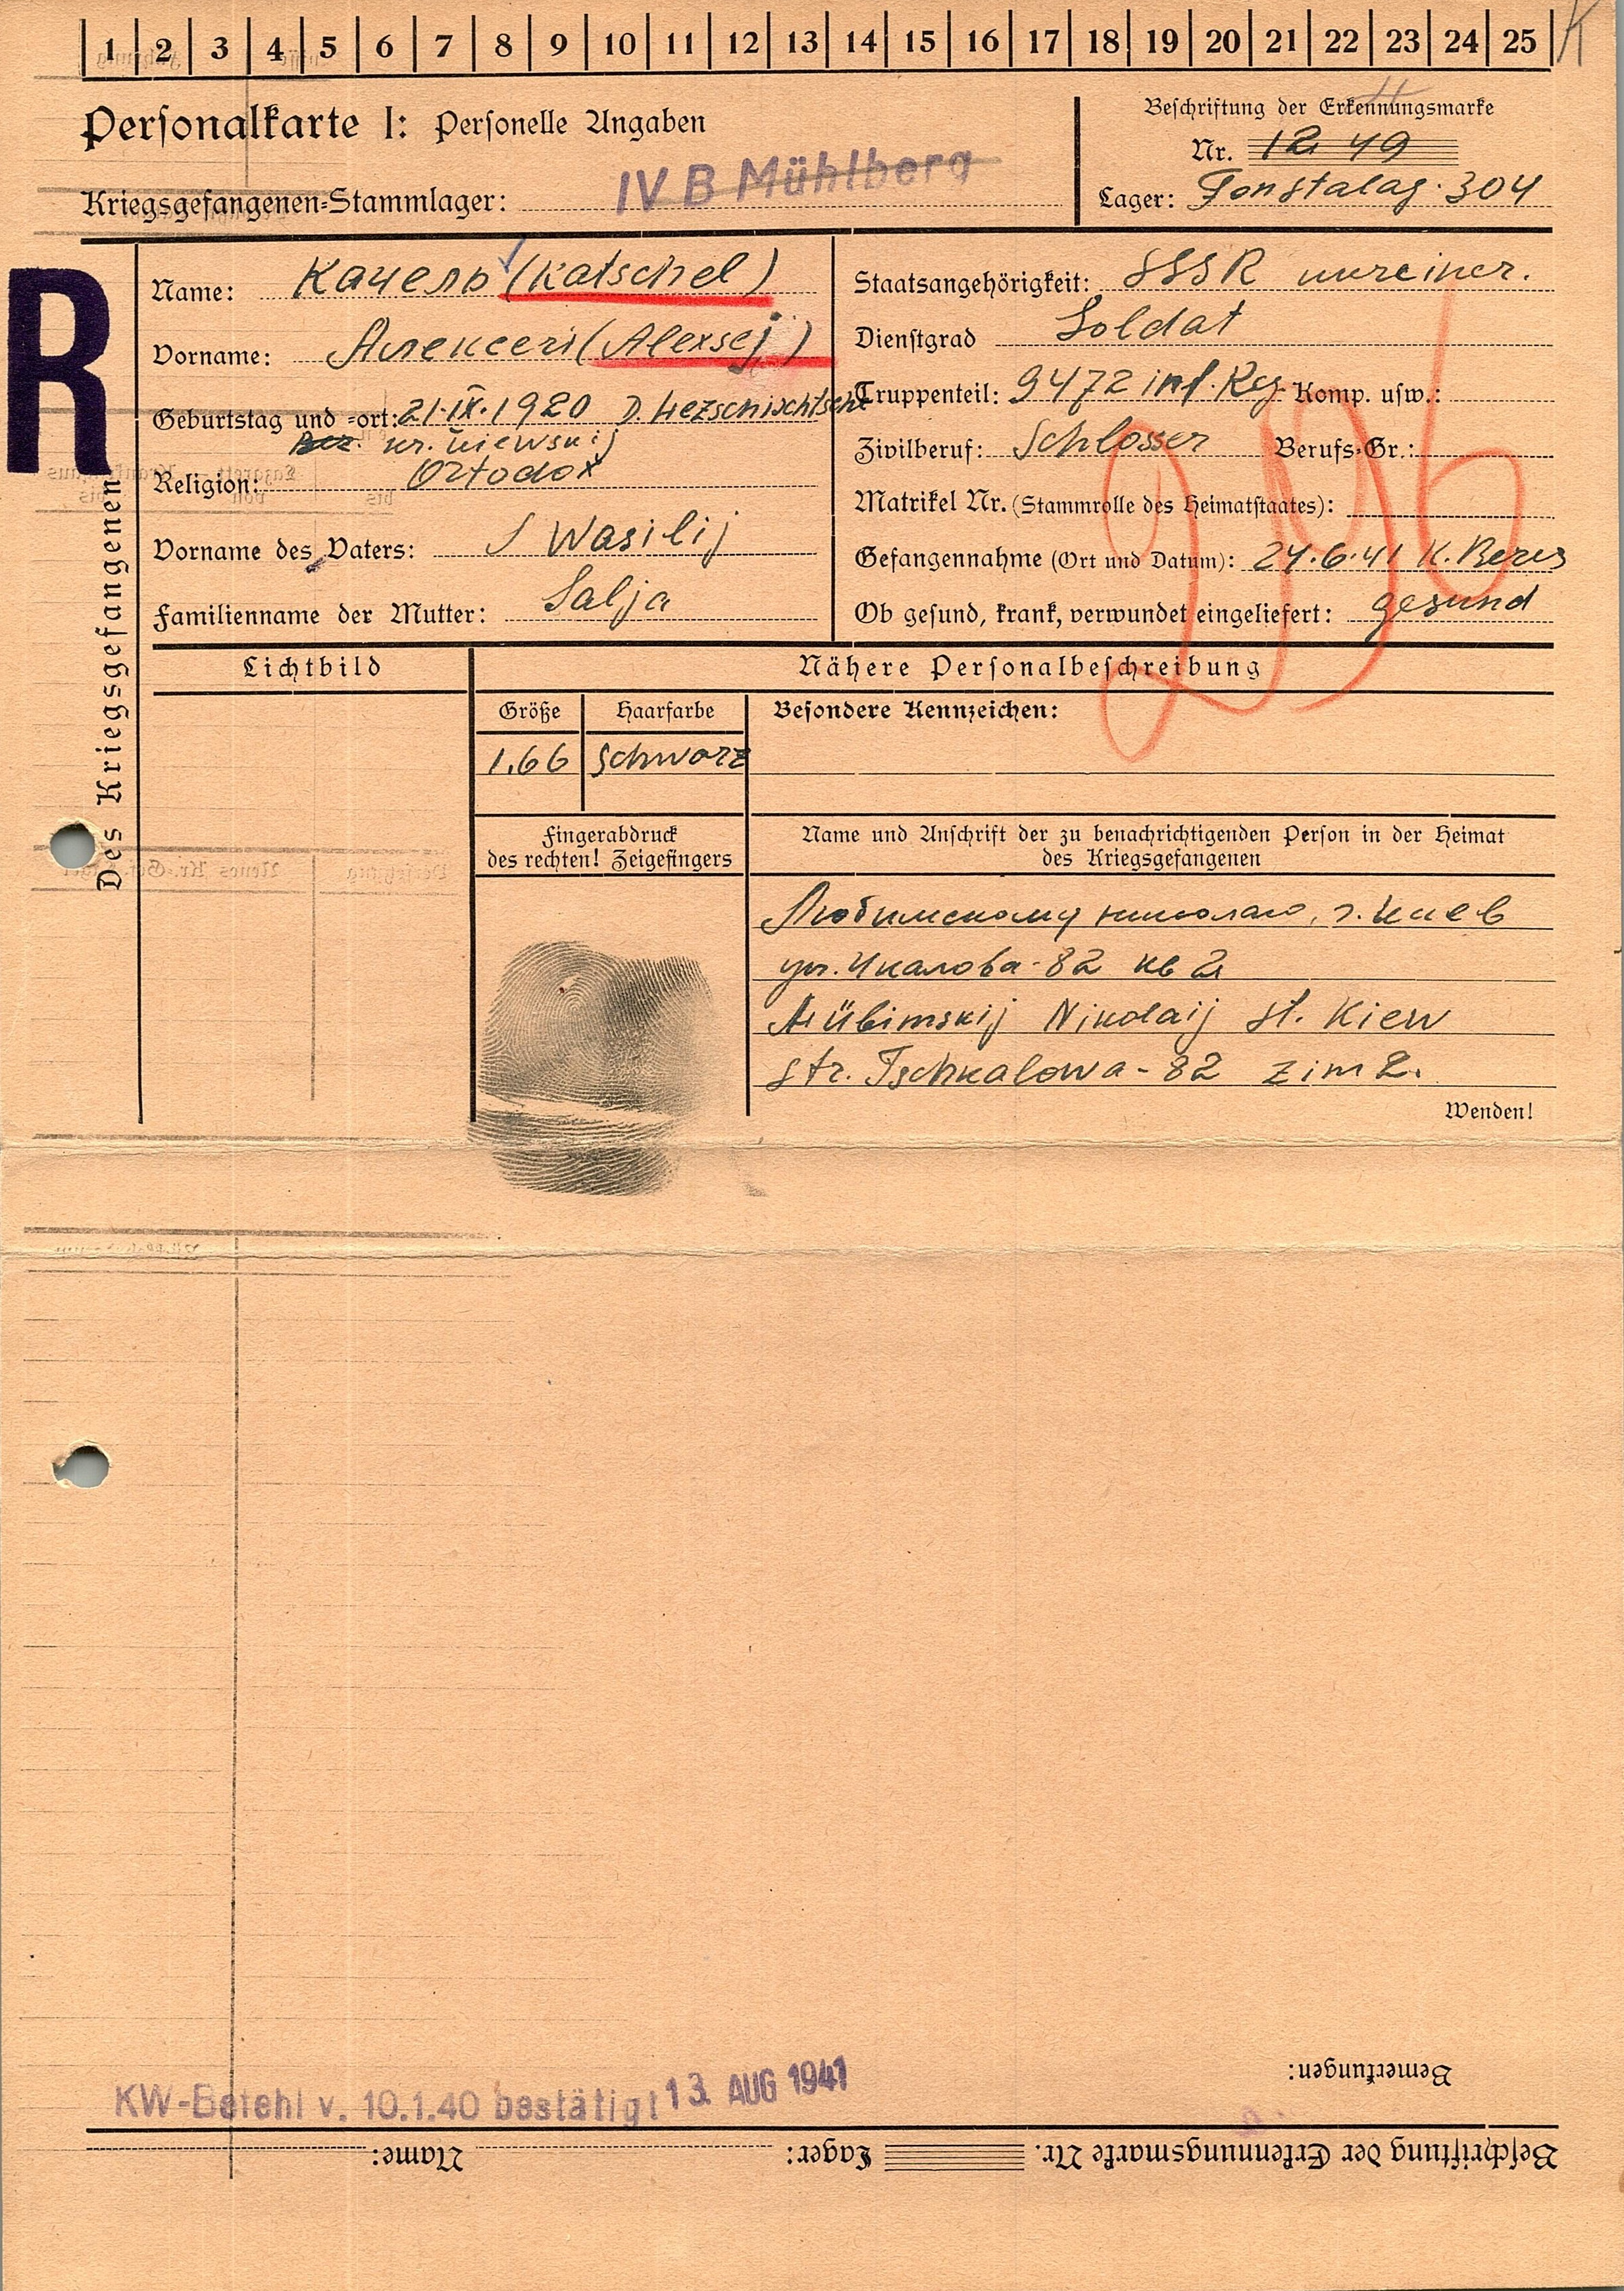 1 2 3 4 5 6 7 8 9 10 11 12 13 14 15 16 17 18 19 20 21 22 23 24 25 K
Personalkarte I: Personelle Angaben
Kriegsgefangenen-Stammlager: IV B Mühlberg
Beschriftung der Erkennungsmarke
Nr. 12 49
Lager: Fonstalag. 304
R
Des Kriegsgefangenen
Name: Качель (Katschel)
Vorname: Алексей (Alexsej)
Geburtstag und -ort: 21.IX.1920 D.
kr. Kiewskij
Religion: Ortodox
Vorname des Vaters: Wasilij
Familienname der Mutter: Salja
Staatsangehörigkeit: SSSR
Dienstgrad Soldat
Truppenteil: 9472 inf. Reg. Komp. usw.:
Zivilberuf: Schlosser Berufs-Gr.:
Matrikel Nr. (Stammrolle des Heimatstaates):
Gefangennahme (Ort und Datum): 24.6.41 K. Beres
Ob gesund, krank, verwundet eingeliefert: gesund
Lichtbild
Nähere Personalbeschreibung
Größe Haarfarbe Besondere Kennzeichen:
1.66 Schwarz
Fingerabdruck
des rechten! Zeigefingers
Name und Anschrift der zu benachrichtigenden Person in der Heimat
des Kriegsgefangenen
Любимскому николаю, г. Киев
ул. Чкалова-82 кв 2
Lübimskij Nikolaij st. Kiew
str. Tschkalowa-82 zim 2.
Wenden!
Bemerkungen:
KW-Befehl v. 10.1.40 bestätigt 13. AUG 1941
Beschriftung der Erkennungsmarke Nr. Lager: Name: